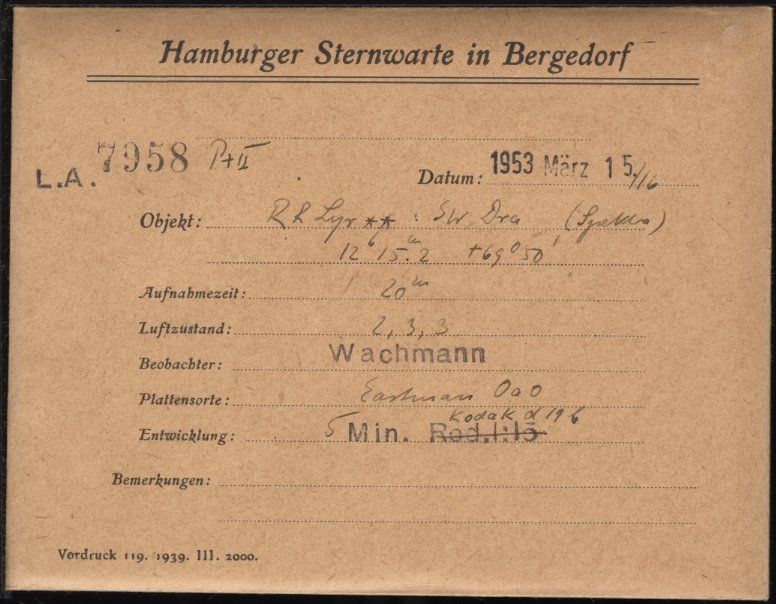 Hamburger Sternwarte in Bergedorf
L.A. 7958 P+II
Datum: 1953 März 15./16
Objekt: RR Lyr ** : SW Dra (Spektra)
12h15m.2 +69°50'
Aufnahmezeit: 20m
Luftzustand: 2, 3, 3
Beobachter: Wachmann
Plattensorte: Eastman OaO
Kodak d 19 b
Entwicklung: 5 Min. Rod. 1:15
Bemerkungen:
Vordruck 119. 1939. III. 2000.